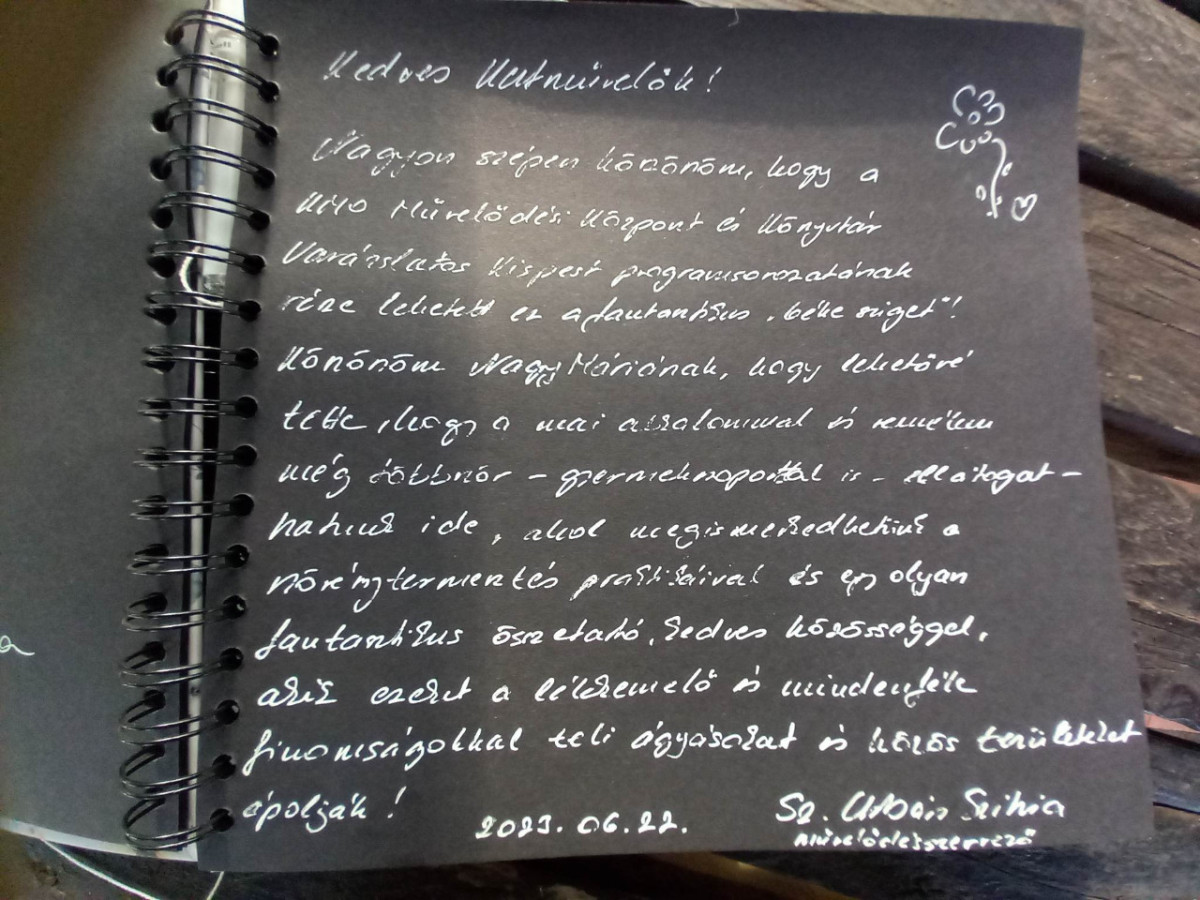 Kedves Kertművelők!
Nagyon szépen köszönöm, hogy a
KMO Művelődési Központ és Könyvtár
Varázslatos Kispest programsorozatának
része lehetett ez a fantasztikus „béke sziget"!
Köszönöm Nagy Máriának, hogy lehetővé
tette, hogy a mai alkalommal és remélem
még többször – gyermekcsoporttal is – ellátogat-
hatunk ide, ahol megismerkedhetünk a
növénytermesztés praktikáival és egy olyan
fantasztikus összetartó, kedves közösséggel,
akik ezeket a lélekemelő és mindenféle
finomságokkal teli ágyásokat és közös területeket
ápolják!
2023. 06. 22.
Sz. Urbán Szilvia
művelődésszervező
a